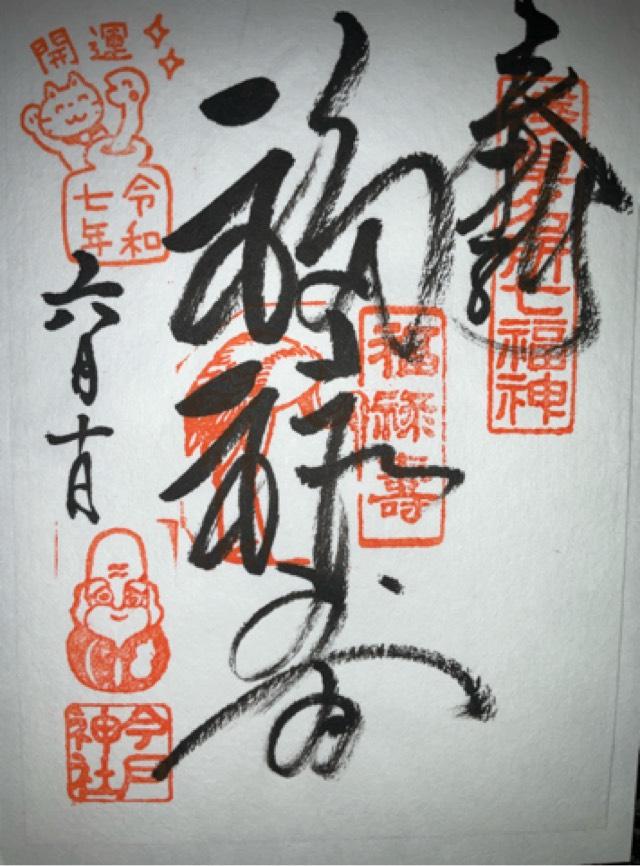 奉拝
浅草名所七福神
福禄寿
福禄壽
開運
令和
七年
六月十日
今戸
神社